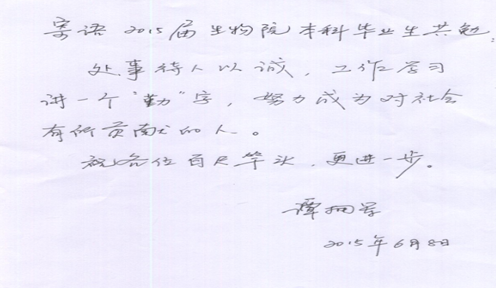 寄语2015届生物院本科毕业生共勉:
处事待人以诚，工作学习
讲一个“勤”字，努力成为对社会
有所贡献的人。
祝各位百尺竿头，更进一步。
2015年6月8日